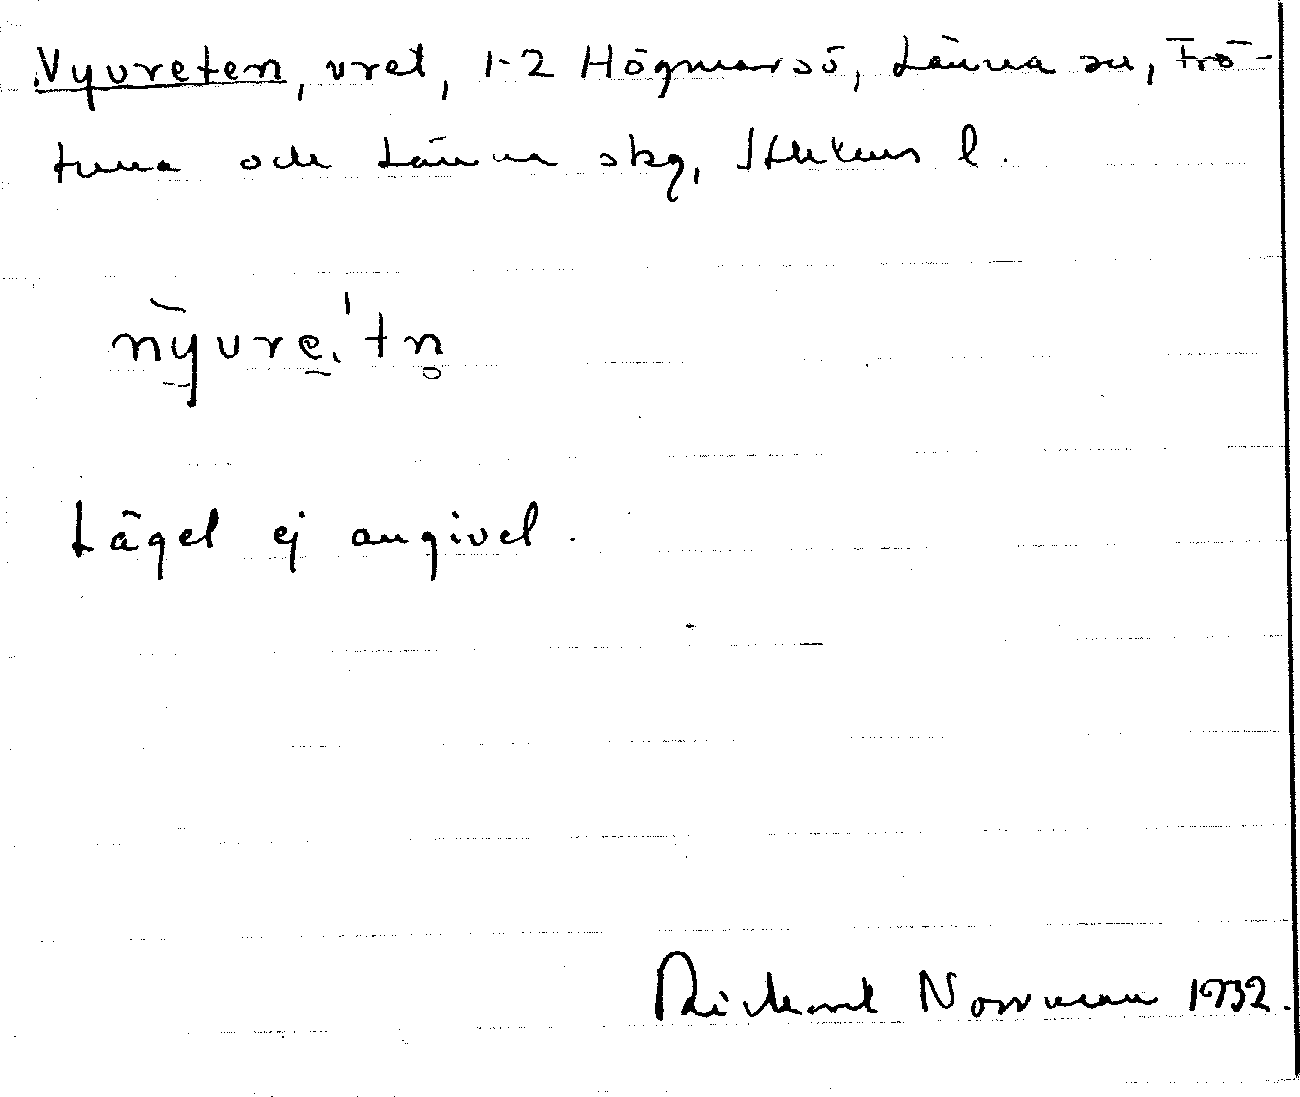 Nyvreten, vret, 1-2 Högmarsö, Länna sn, Frö-
tuna och Länna skg, Sthlms l.
nỳvre.'tn̥
Läget ej angivet.
Rickard Norrman 1932.